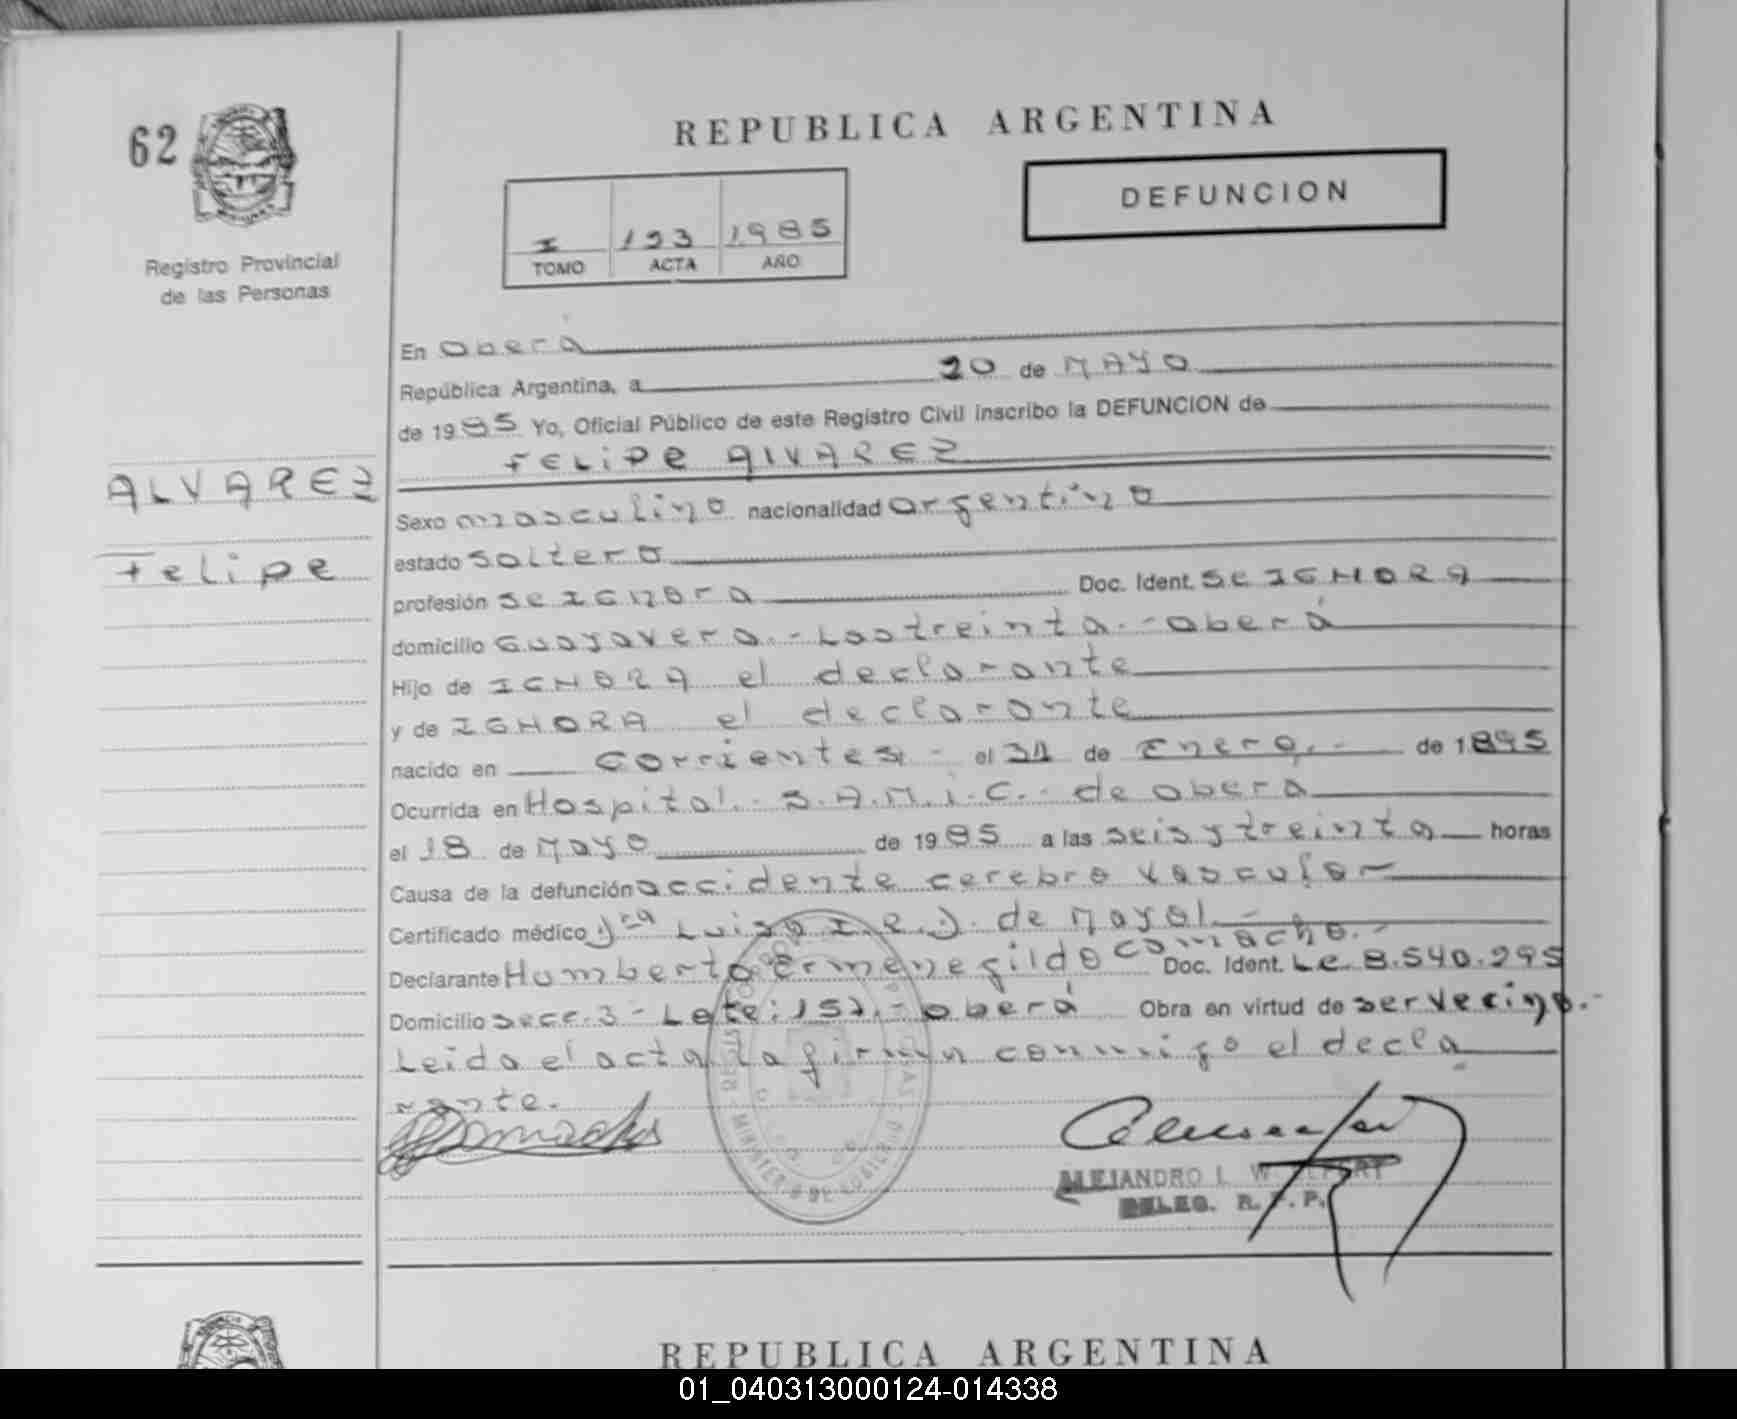 62
REPUBLICA ARGENTINA
DEFUNCION
I 193 1985
TOMO ACTA AÑO
Registro Provincial
de las Personas
En Oberá
República Argentina, a 20 de MAYO
de 1985 Yo, Oficial Público de este Registro Civil inscribo la DEFUNCION de
FELIPE ALVAREZ
ALVAREZ
Felipe
Sexo masculino nacionalidad argentino
estado soltero
profesión se IGNORA Doc. Ident. se IGNORA
domicilio Guayavera.- Los treinta.- oberá
Hijo de IGNORA el declarante
y de IGNORA el declarante
nacido en Corrientes.- el 31 de Enero.- de 1895
Ocurrida en Hospital.- S.A.M.i.C.- de obera
el 18 de MAYO de 1985 a las seis y treinta horas
Causa de la defunción accidente cerebro vascular
Certificado médico Dra Luisa I.e.D. de Mayol.-
Declarante Humberto Ermenegildo Camacho.- Doc. Ident. L.e. 8.540.295
Domicilio Secc. 3 - Lote: 152.- oberá Obra en virtud de ser vecino.-
Leida el acta la firman conmigo el decla
rante.
ALEJANDRO I.
DELEG. R. P. P.
REPUBLICA ARGENTINA
01_040313000124-014338